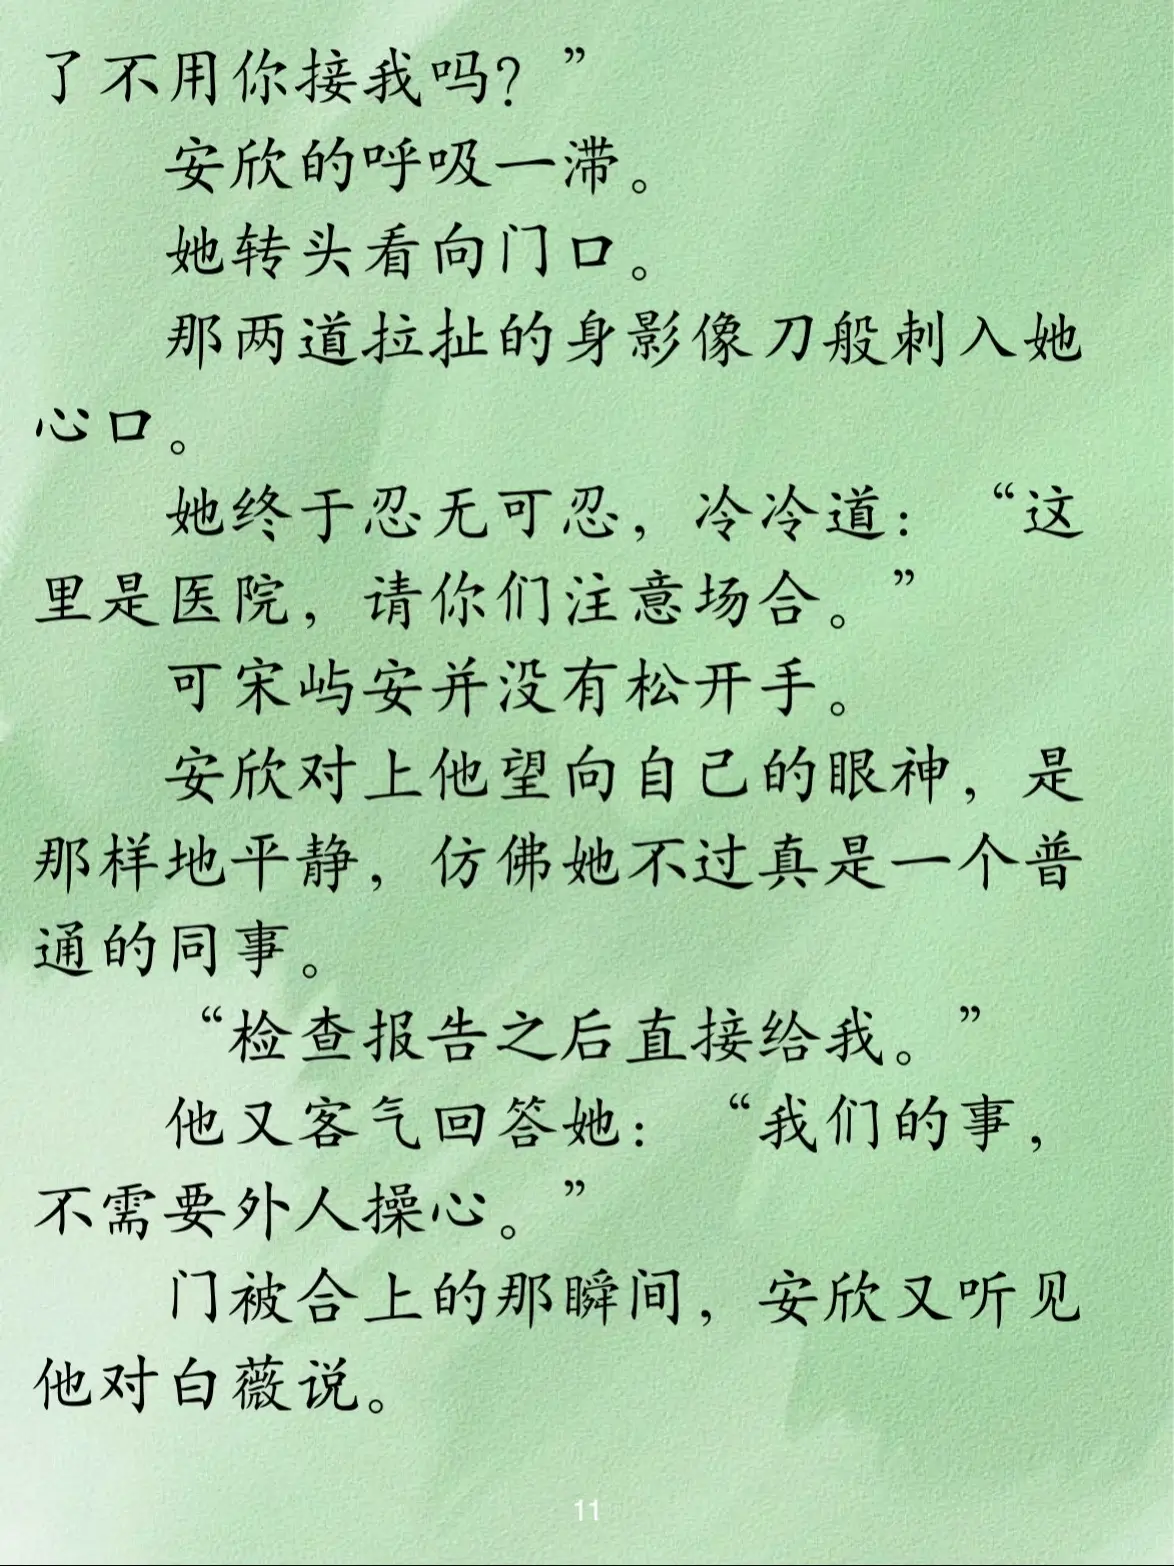 了不用你接我吗？”
安欣的呼吸一滞。
她转头看向门口。
那两道拉扯的身影像刀般刺入她
心口。
她终于忍无可忍，冷冷道：“这
里是医院，请你们注意场合。”
可宋屿安并没有松开手。
安欣对上他望向自己的眼神，是
那样地平静，仿佛她不过真是一个普
通的同事。
“检查报告之后直接给我。”
他又客气回答她：“我们的事，
不需要外人操心。”
门被合上的那瞬间，安欣又听见
他对白薇说。
11